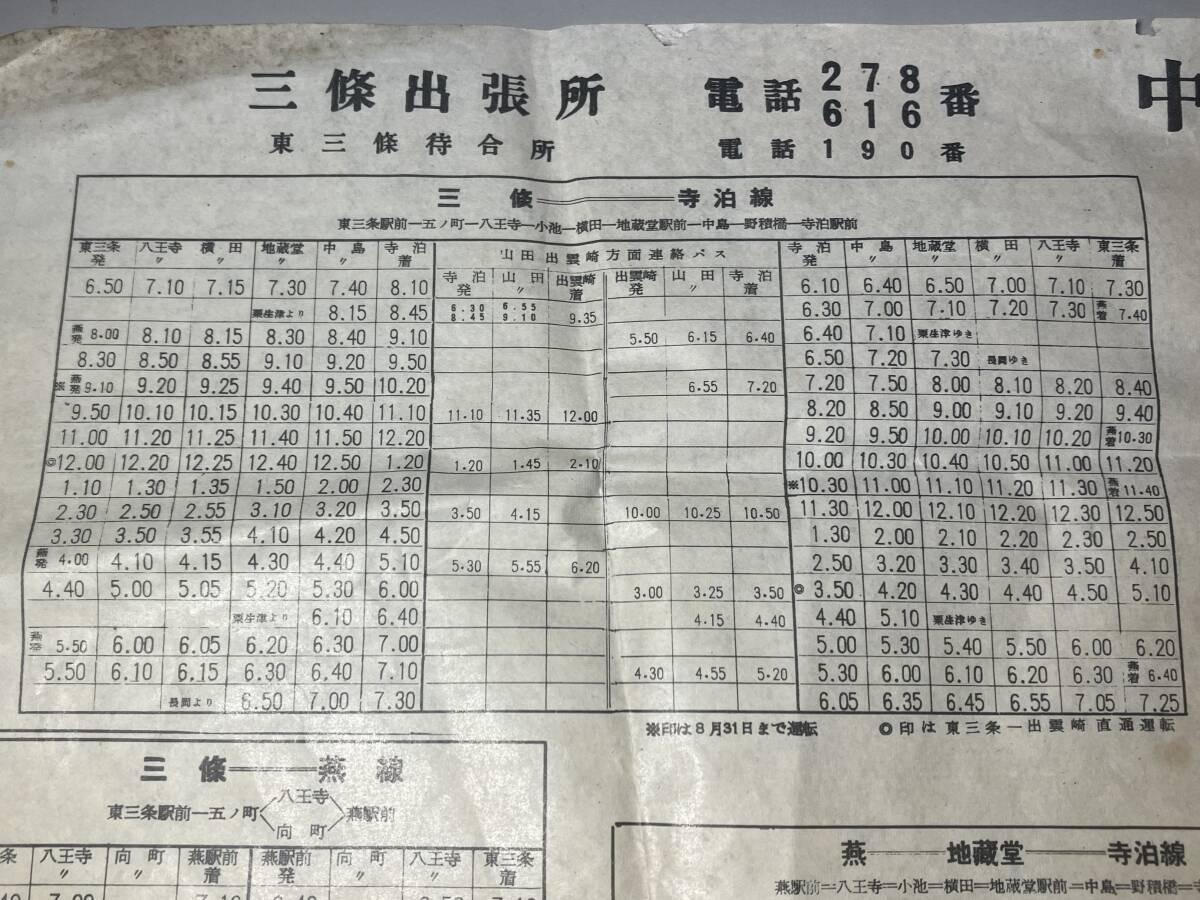 三條出張所 電話 278 616 番 中
東三條待合所 電話190番
三條——寺泊線
東三条駅前—五ノ町—八王寺—小池—横田—地蔵堂駅前—中島—野積橋—寺泊駅前
東三条発 八王寺〃 横田〃 地蔵堂〃 中島〃 寺泊着 山田出雲崎方面連絡バス 寺泊発 中島〃 地蔵堂〃 横田〃 八王寺〃 東三条着
寺泊発 山田〃 出雲崎着 出雲崎発 山田〃 寺泊着
6.50 7.10 7.15 7.30 7.40 8.10 6.10 6.40 6.50 7.00 7.10 7.30
粟生津より 8.15 8.45 6.30 6.55 8.45 9.10 9.35 6.30 7.00 7.10 7.20 7.30 燕着7.40
燕発8.00 8.10 8.15 8.30 8.40 9.10 5.50 6.15 6.40 6.40 7.10 粟生津ゆき
8.30 8.50 8.55 9.10 9.20 9.50 6.50 7.20 7.30 長岡ゆき
※燕発9.10 9.20 9.25 9.40 9.50 10.20 6.55 7.20 7.20 7.50 8.00 8.10 8.20 8.40
9.50 10.10 10.15 10.30 10.40 11.10 11.10 11.35 12.00 8.20 8.50 9.00 9.10 9.20 9.40
11.00 11.20 11.25 11.40 11.50 12.20 9.20 9.50 10.00 10.10 10.20 燕着10.30
◎12.00 12.20 12.25 12.40 12.50 1.20 1.20 1.45 2.10 10.00 10.30 10.40 10.50 11.00 11.20
1.10 1.30 1.35 1.50 2.00 2.30 ※10.30 11.00 11.10 11.20 11.30 燕着11.40
2.30 2.50 2.55 3.10 3.20 3.50 3.50 4.15 10.00 10.25 10.50 11.30 12.00 12.10 12.20 12.30 12.50
3.30 3.50 3.55 4.10 4.20 4.50 1.30 2.00 2.10 2.20 2.30 2.50
燕発4.00 4.10 4.15 4.30 4.40 5.10 5.30 5.55 6.20 2.50 3.20 3.30 3.40 3.50 4.10
4.40 5.00 5.05 5.20 5.30 6.00 3.00 3.25 3.50 ◎3.50 4.20 4.30 4.40 4.50 5.10
粟生津より 6.10 6.40 4.15 4.40 4.40 5.10 粟生津ゆき
燕発5.50 6.00 6.05 6.20 6.30 7.00 5.00 5.30 5.40 5.50 6.00 6.20
5.50 6.10 6.15 6.30 6.40 7.10 4.30 4.55 5.20 5.30 6.00 6.10 6.20 6.30 燕着6.40
長岡より 6.50 7.00 7.30 6.05 6.35 6.45 6.55 7.05 7.25
※印は8月31日まで運転 ◎印は東三条—出雲崎直通運転
三條——燕線
東三条駅前—五ノ町 八王寺 向町 燕駅前
条 八王寺〃 向町〃 燕駅前着 燕駅前発 向町〃 八王寺〃 東三条着
燕——地蔵堂——寺泊線
燕駅前=八王寺=小池=横田=地蔵堂駅前=中島=野積橋=